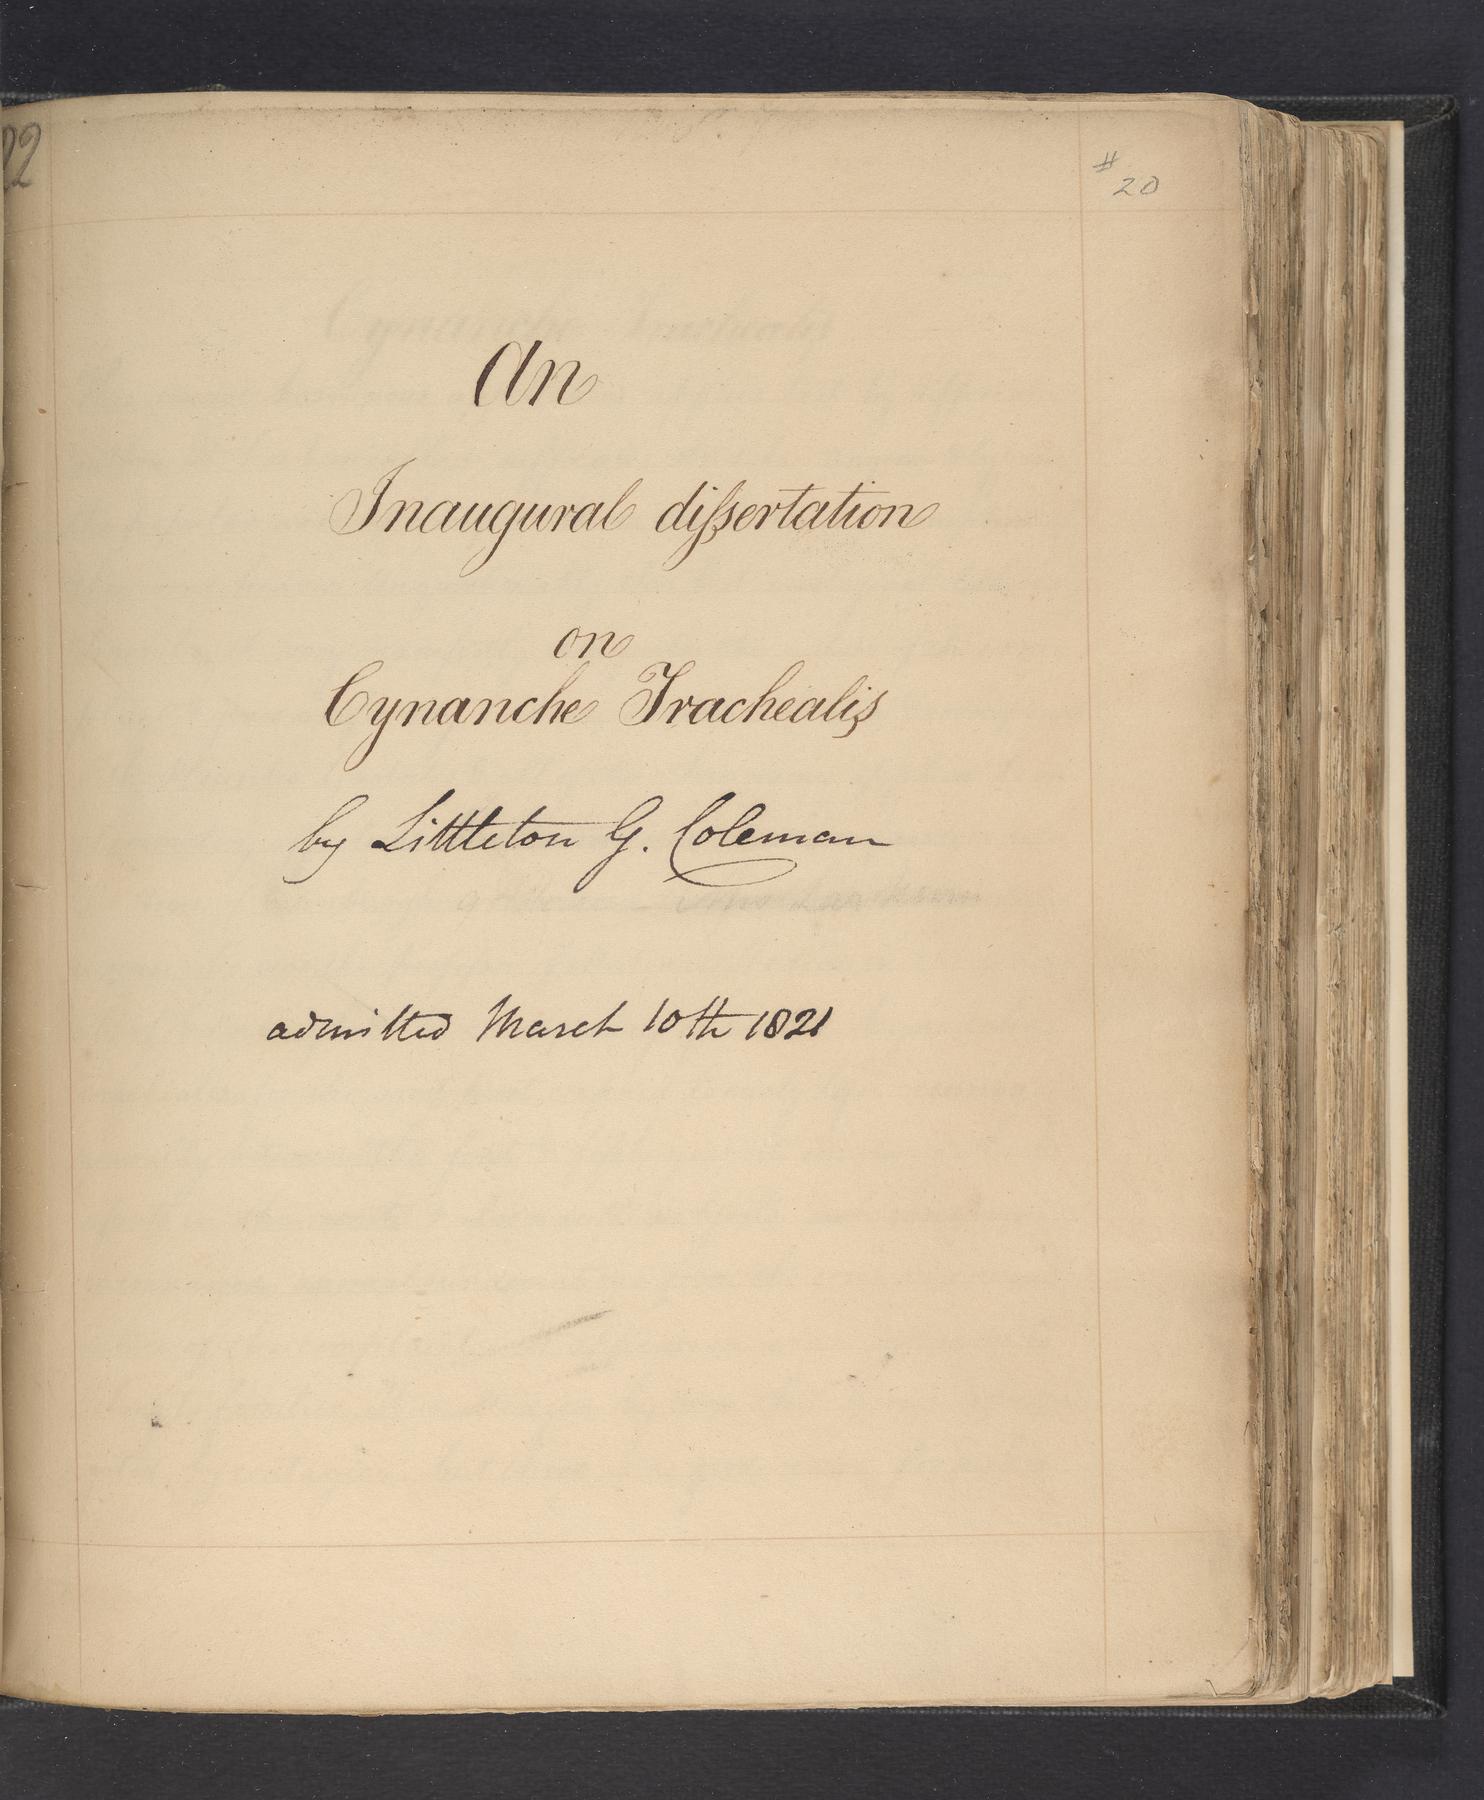 22
# 20
An
Inaugural dissertation
on
Cynanche Trachealis
by Littleton G. Coleman
admitted March 10th 1821